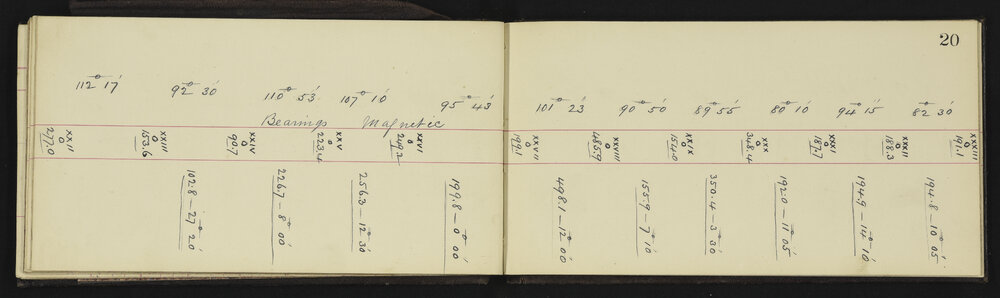 20
112° 17′ 92° 30′ 110° 53′ 107° 10′ 95° 43′ 101° 23′ 90° 50′ 89° 55′ 80° 10′ 94° 15′ 82° 30′
Bearings Magnetic
XXII XXIII XXIV XXV XXVI XXVII XXVIII XXIX XXX XXXI XXXII XXXIII
277.0 153.6 90.7 223.4 249.2 199.1 485.9 154.0 348.4 187.7 188.3 191.1
102.8 – 27° 20′
226.7 – 8° 00′
256.3 – 12° 30′
199.8 – 0° 00′
498.1 – 12° 00′
155.9 – 7° 10′
350.4 – 3° 30′
192.0 – 11° 05′
194.9 – 14° 10′
194.8 – 10° 05′